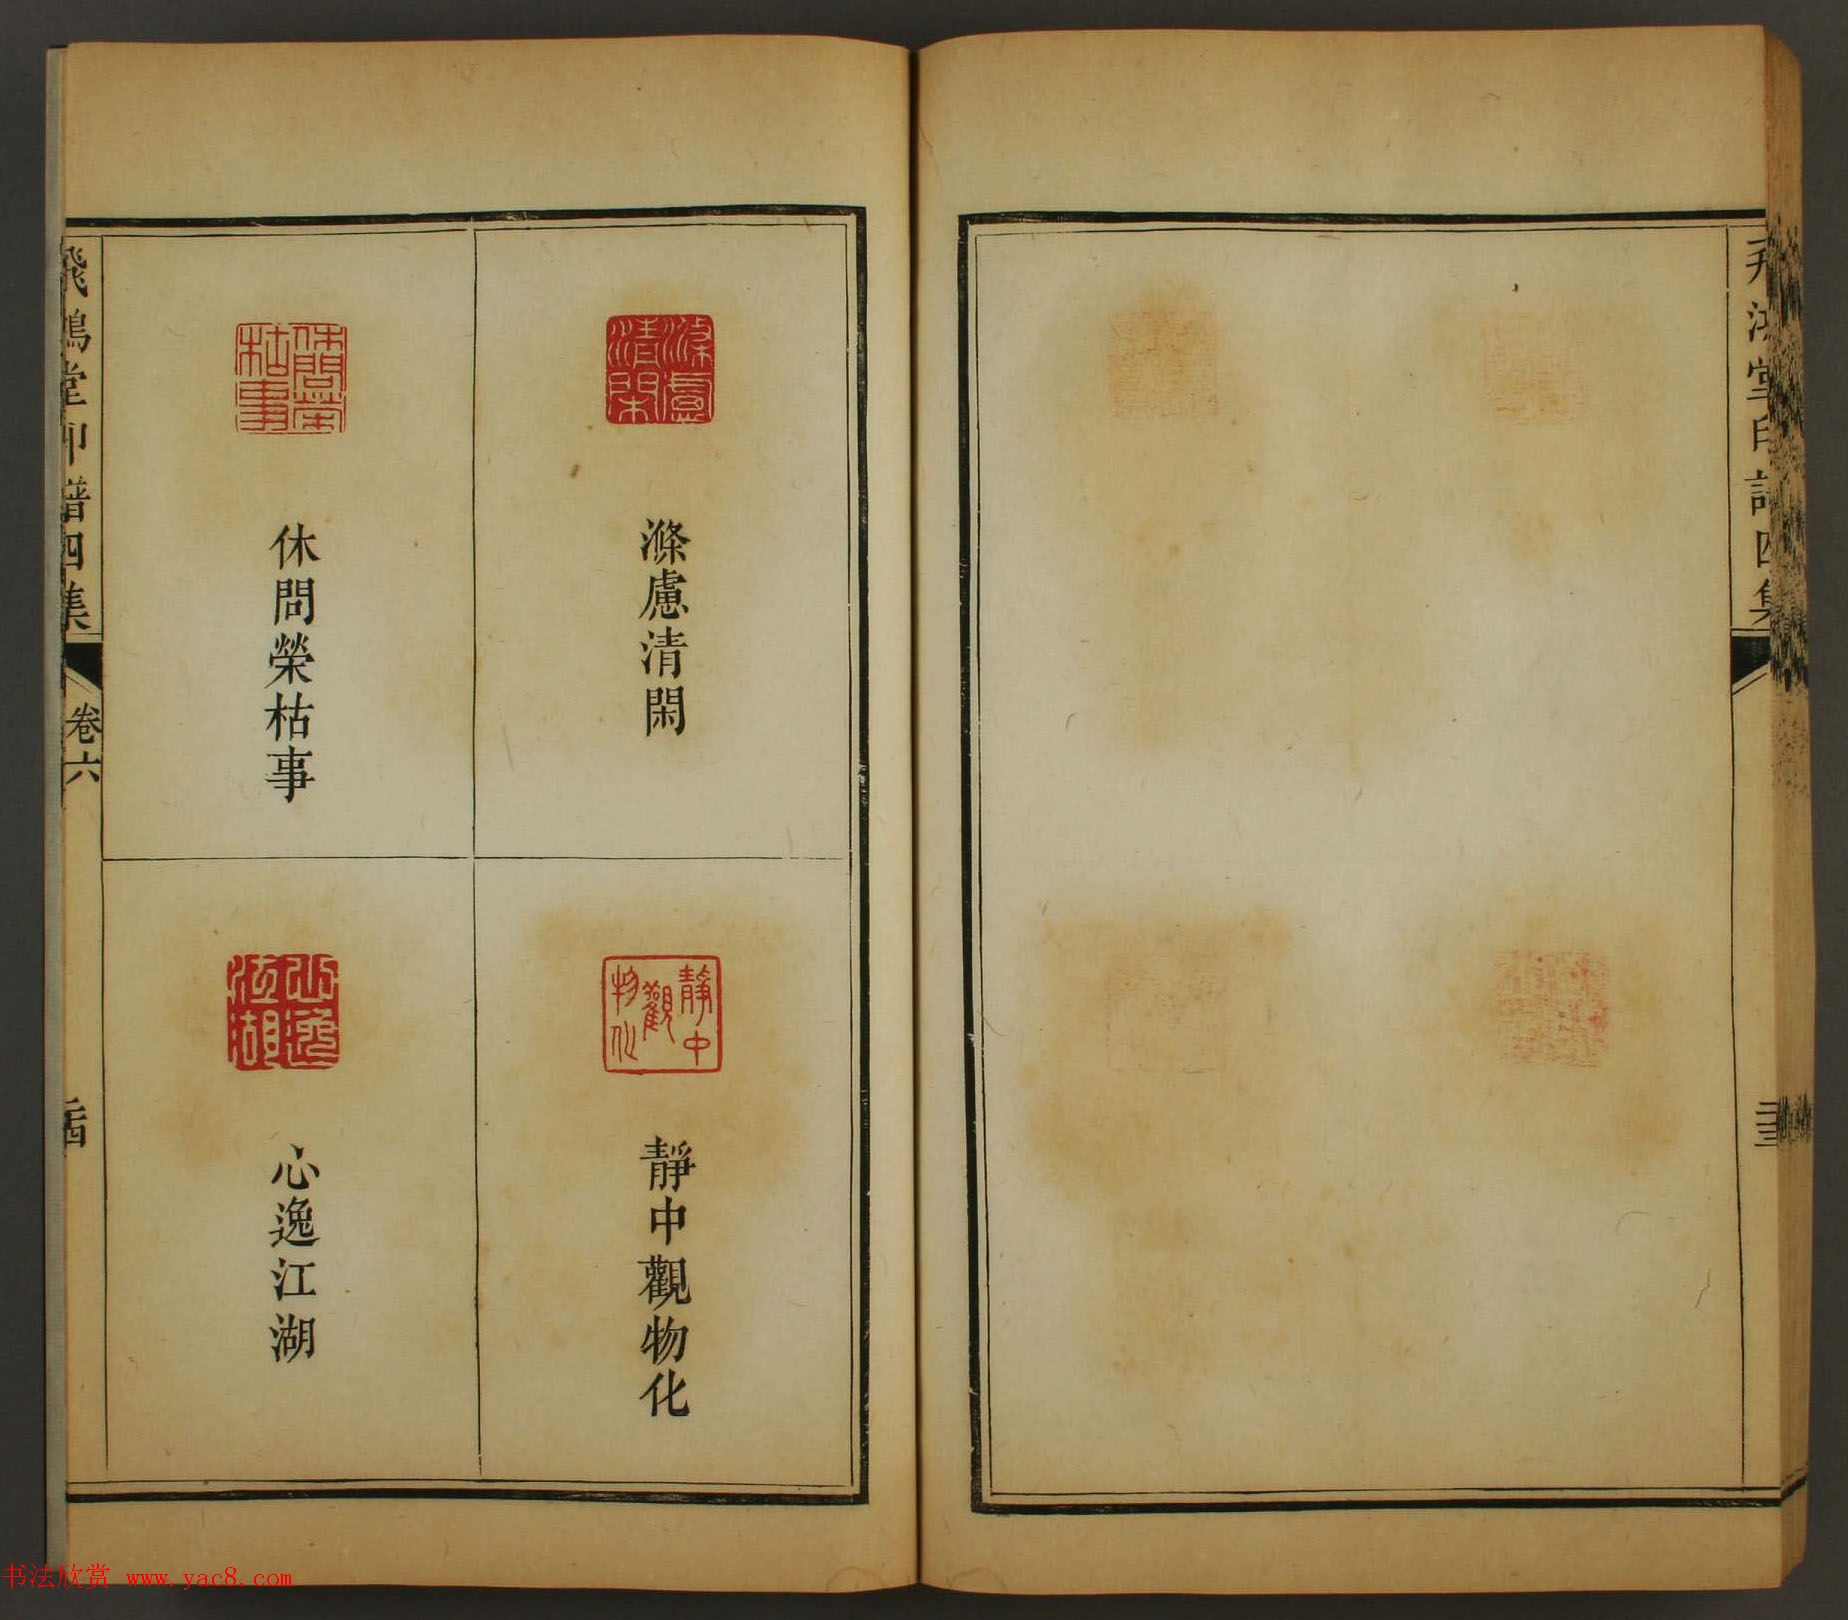 飛鴻堂印譜四集
二十三
滌慮清閑
滌慮清閑
靜中觀物化
靜中觀物化
休問榮枯事
休問榮枯事
心逸江湖
心逸江湖
飛鴻堂印譜四集
卷六
二十四
书法欣赏 www.yac8.com